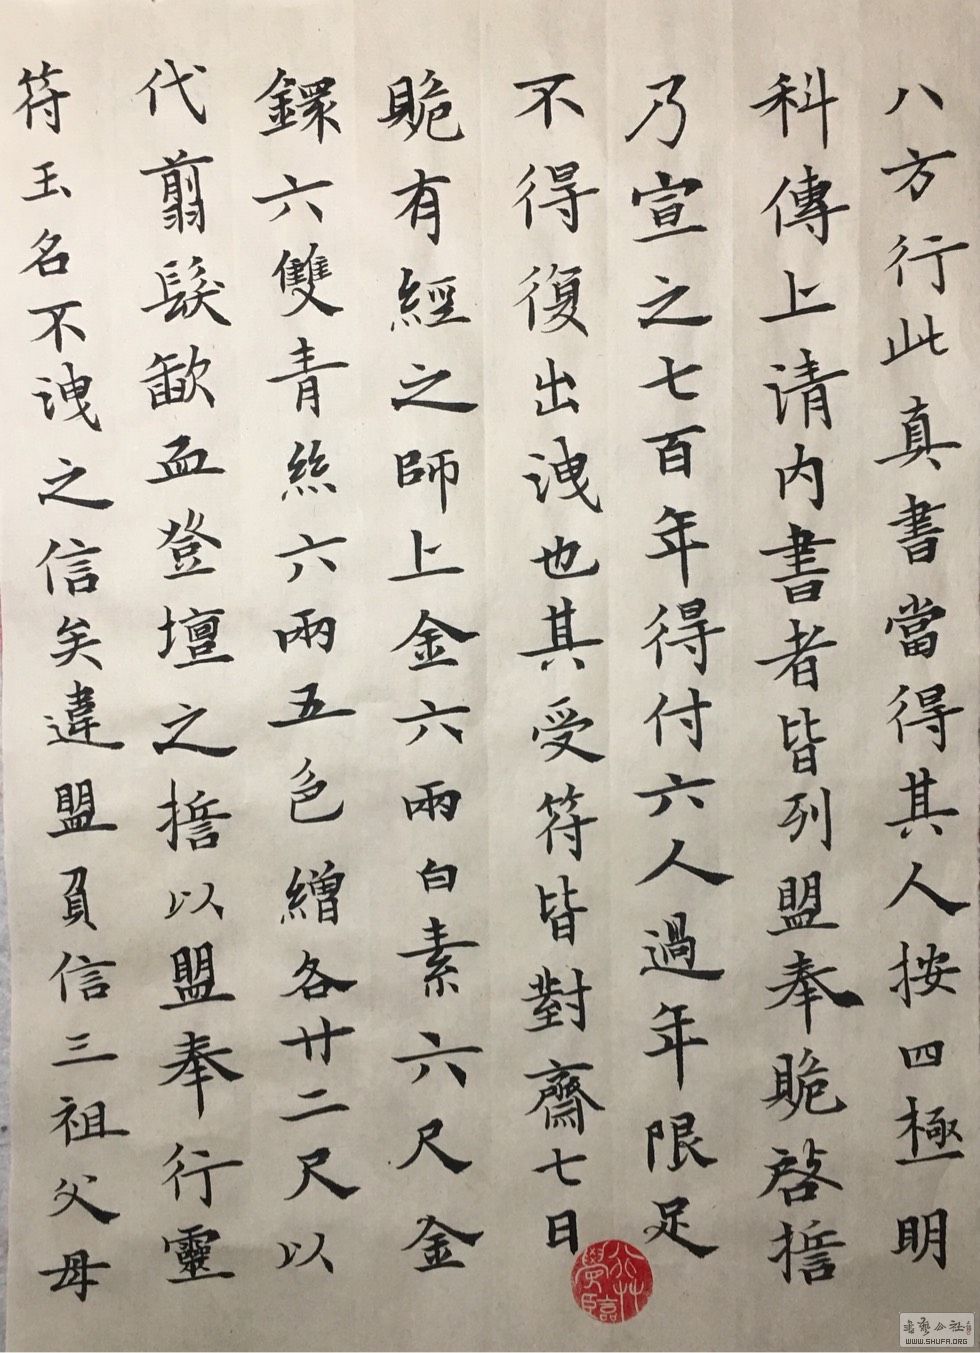 八方行此真書當得其人按四極明
科傳上清内書者皆列盟奉贍啓擔
乃宣之七百年得付六人過年限足
不得復出洩也其受符皆對齋七日
贍有經之師上金六兩白素六尺金
鐶六雙青絲六兩五色繒各廿二尺以
代翦髮歃血登壇之擔以盟奉行靈
符玉名不洩之信矣違盟負信三祖父母
書藝公社
WWW.SHUFA.ORG